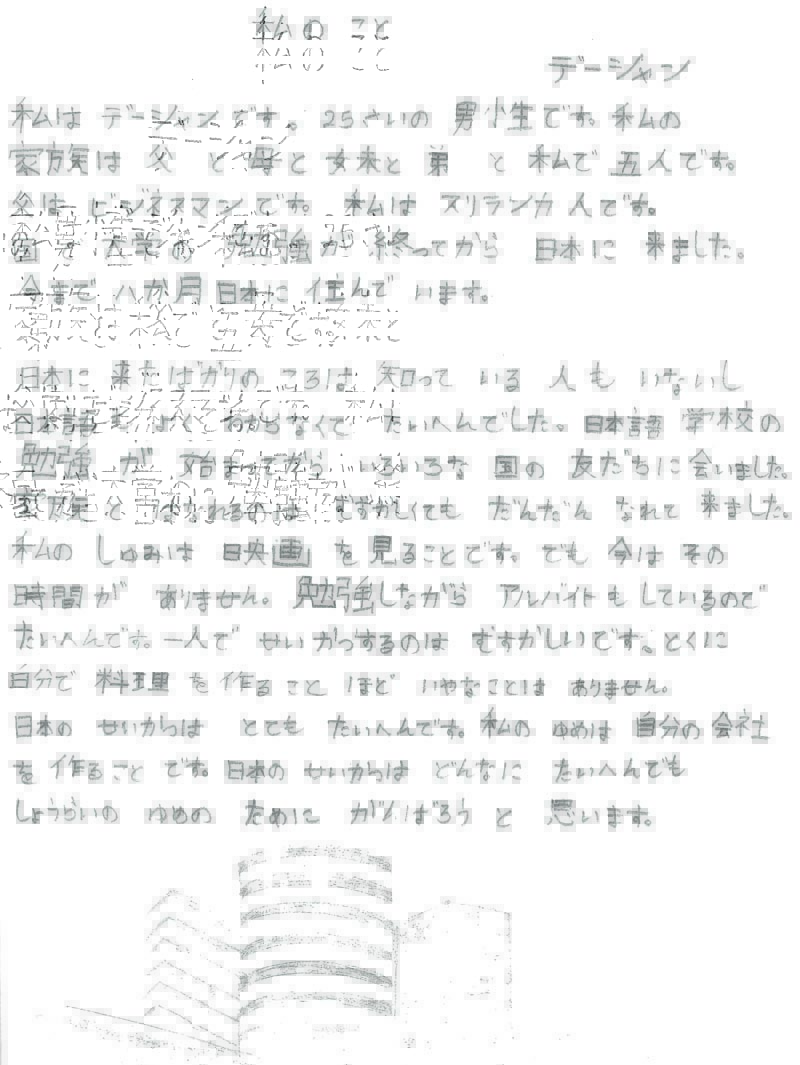 私のこと
デージャン
私は デージャンです。25さいの 男性です。私の
家族は 父 と 母と 妹と 弟 と 私で 五人です。
父は ビジネスマンです。私は スリランカ人です。
大学の 勉強が 終ってから 日本に 来ました。
今まで 八か月 日本に 住んで います。
日本に 来たばかりの ころは、知って いる 人も いないし
日本語 よくわからなくて たいへんでした。日本語 学校の
勉強 が 始まってから いろいろな 国の 友だちに 会いました。
家族と はなれるのは むずかしくても だんだん なれて 来ました。
私の しゅみは 映画 を 見ることです。でも 今は その
時間が ありません。勉強しながら アルバイトも しているので
たいへんです。一人で せいかつするのは むずかしいです。とくに
自分で 料理 を 作る こと ほど いやなことは ありません。
日本の せいかつは とても たいへんです。私の ゆめは 自分の 会社
を 作ること です。日本の せいかつは どんなに たいへんでも
しょうらいの ゆめの ために がんばろう と 思います。